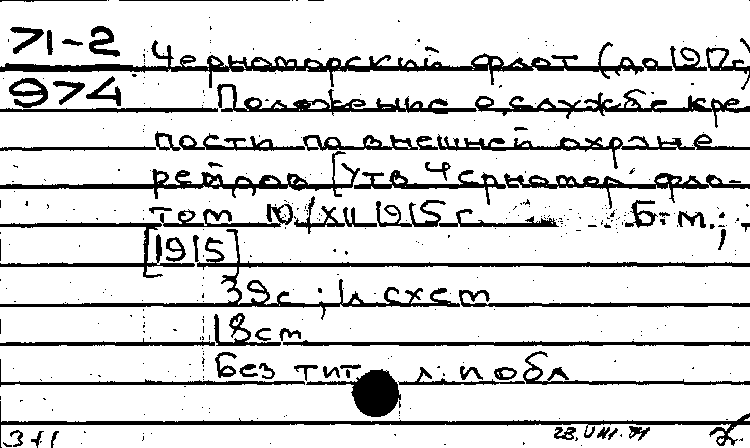 71-2
974
Черноморский флот (до 1917 г)
Положение о службе кре-
пости по внешней охране
рейдов. [Утв Черномор. фло-
том 10/XII 1915 г. Б. м.;
[1915]
39 с ; 1 л схем
18 см
Без тит л. и обл
3+1
28.VIII.